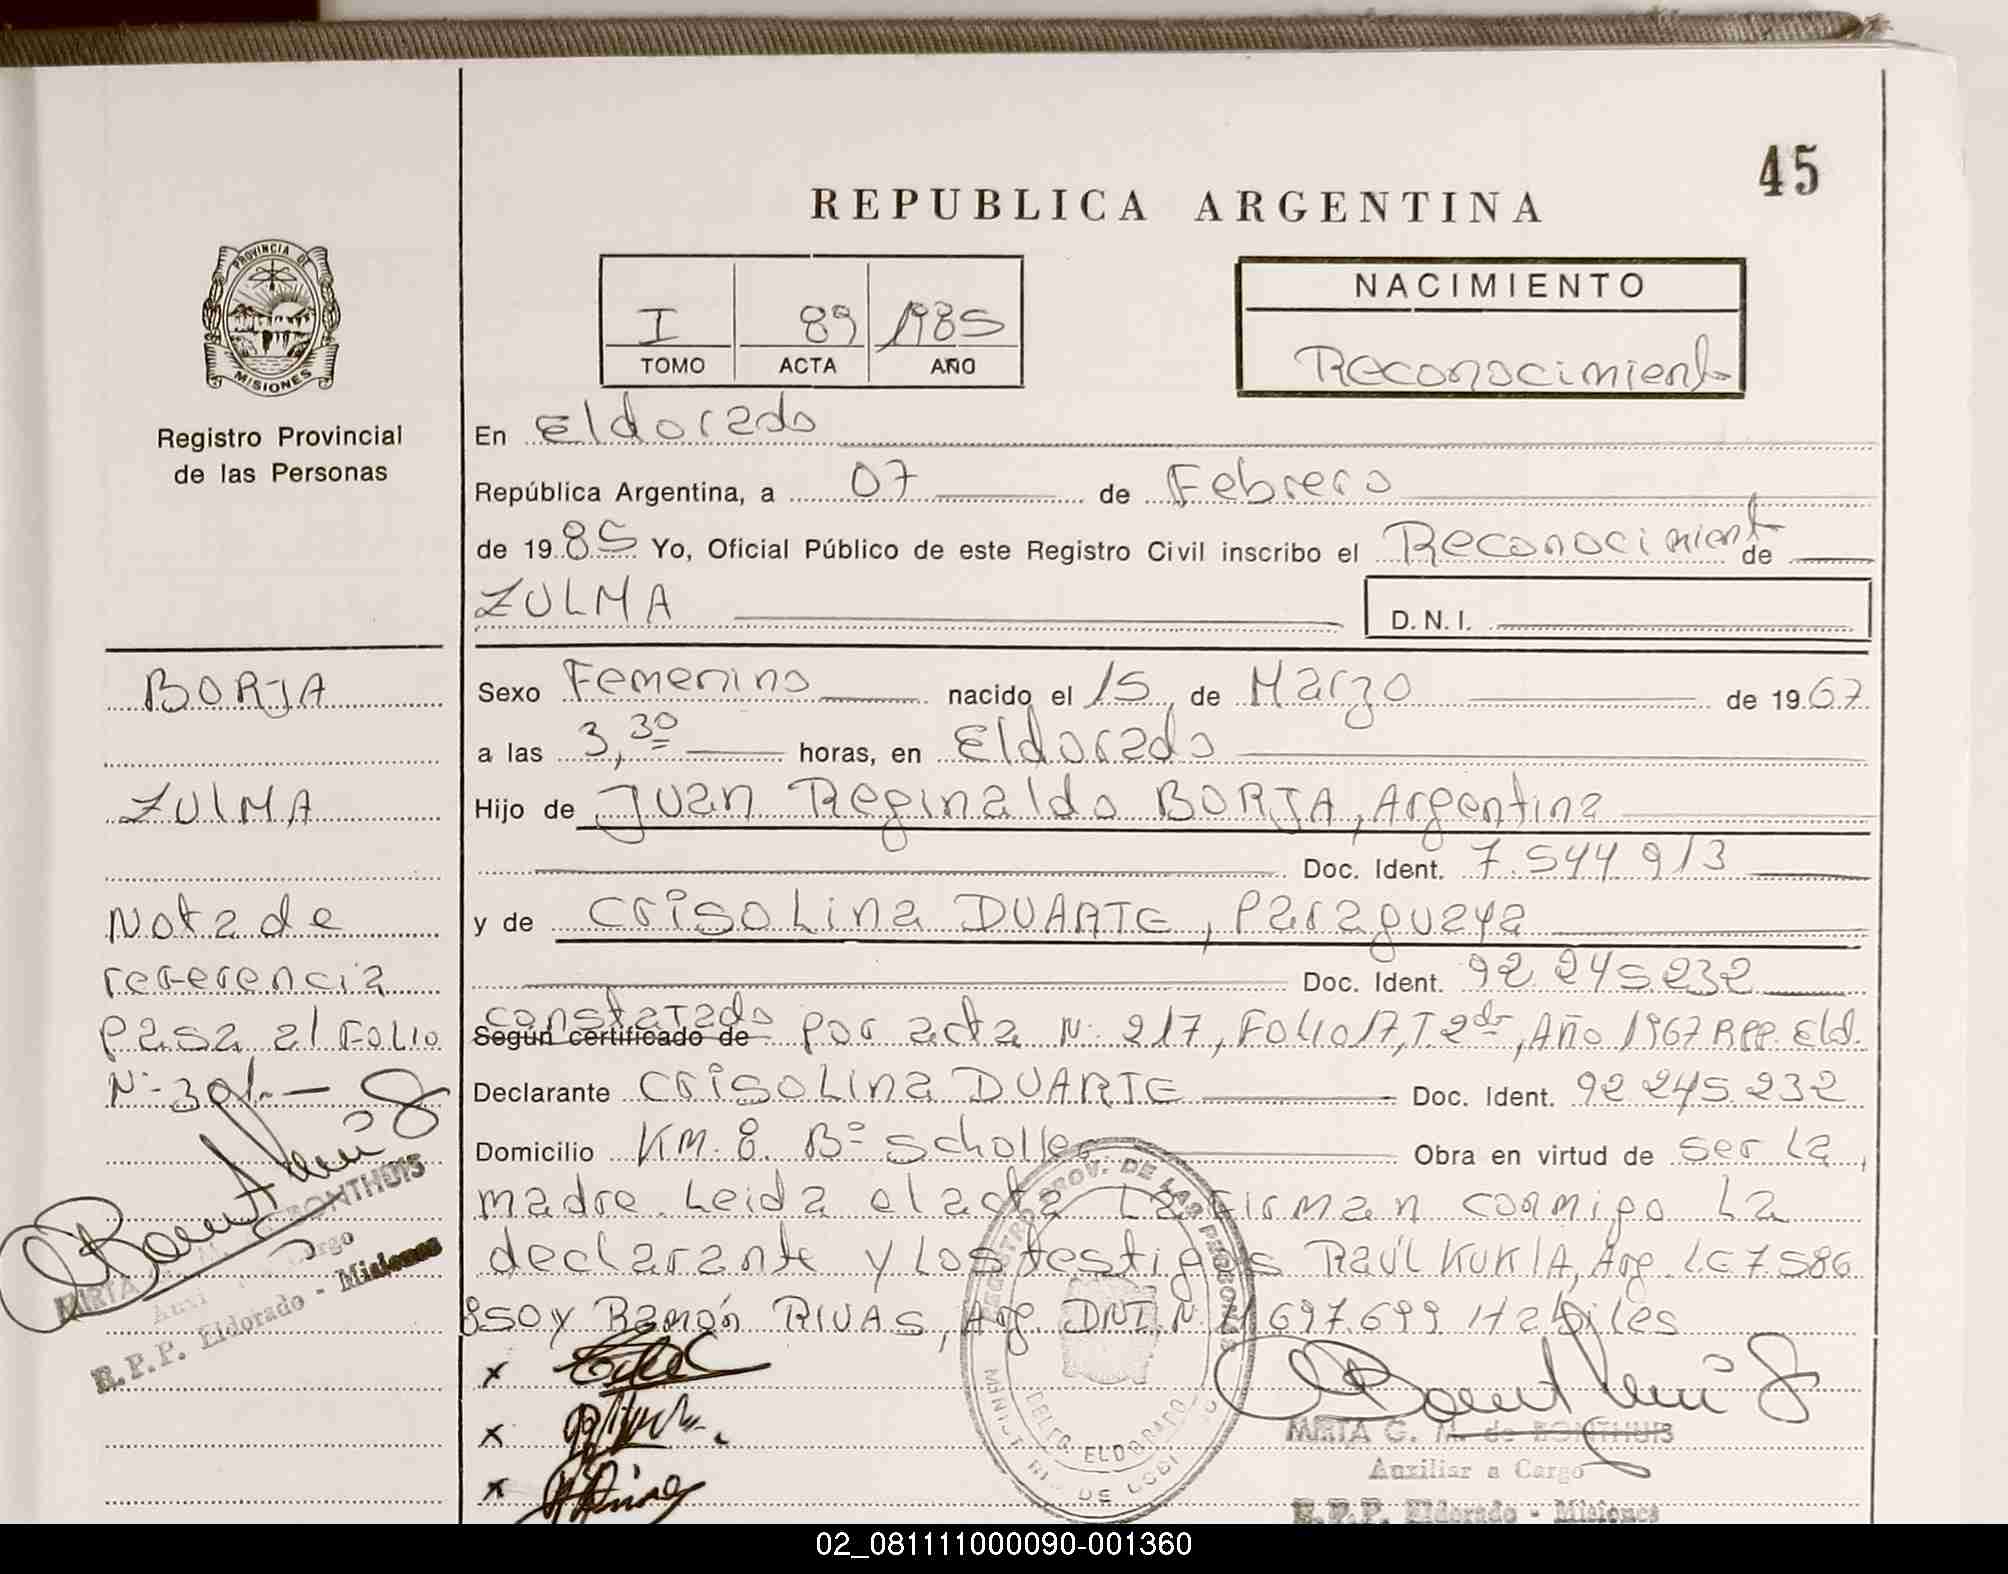 45
REPUBLICA ARGENTINA
PROVINCIA DE
MISIONES
Registro Provincial
de las Personas
I 89 1985
TOMO ACTA AÑO
NACIMIENTO
Reconocimiento
En Eldorado
República Argentina, a 07 de Febrero
de 1985 Yo, Oficial Público de este Registro Civil inscribo el Reconocimient de
ZULMA D.N.I.
BORJA
ZULMA
Nota de
referencia
pasa al Folio
Nº 30
Sexo Femenino nacido el 15 de Marzo de 1967
a las 3,30 horas, en Eldorado
Hijo de Juan Reginaldo BORJA, Argentina
Doc. Ident. 7.544.913
y de Crisolina DUARTE, Paraguaya
Doc. Ident. 92.245.232
constatado
Según certificado de por acta Nº 217, Folio 17, T. 2do, Año 1967 RPP. Eld.
Declarante Crisolina DUARTE Doc. Ident. 92.245.232
Domicilio KM. 8. Bº Scholler Obra en virtud de ser la
madre. Leida el acta la firman conmigo la
declarante y los testigos Raúl KUKLA, Arg. L.C 7.586
850 y Ramón RIVAS, Arg. DNI. N. 697.699 Habiles
REGISTRO PROV. DE LAS PERSONAS
DELEG. ELDORADO
MIRTA G. M. de BONTHUIS
Auxiliar a Cargo
R.P.P. Eldorado - Misiones
MIRTA M. BONTHUIS
Cargo
R.P.P. Eldorado - Misiones
02_081111000090-001360